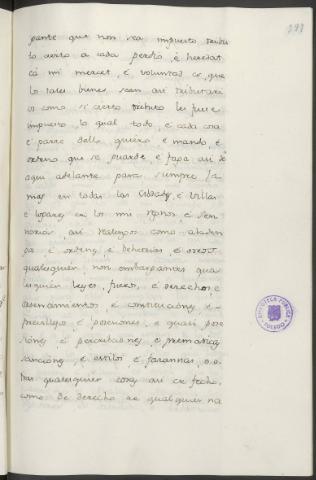 193
pante que non sea impuesto tribu
to cierto a cada pecho, e heredat
cá mi mercet, e voluntad es, que
los tales bienes sean asi tributari
os como si cierto tributo les fuere
impuesto, lo qual todo, e cada cosa
e parte dello quiero, e mando, e
ordeno que se guarde, e faga asi de
aqui adelante para siempre ja
mas en todas las Cibdades, e Villas
e logares en los mis regnos, e Sen
norios, asi realengos como abaden
gos e ordenes, e behetrias, e
qualesquier non embargantes qua
lesquier Leyes, fueros, e derechos, e
ordenamientos, e constituciones, e
previllejos, e posesiones, e quasi pose
siones, e prescripciones, e prematicas
sanciones, e estilos, e fazannas, o o
tras qualesquier cosas asi de fecho,
como de derecho de qualquier na
BIBLIOTECA PUBLICA
TOLEDO